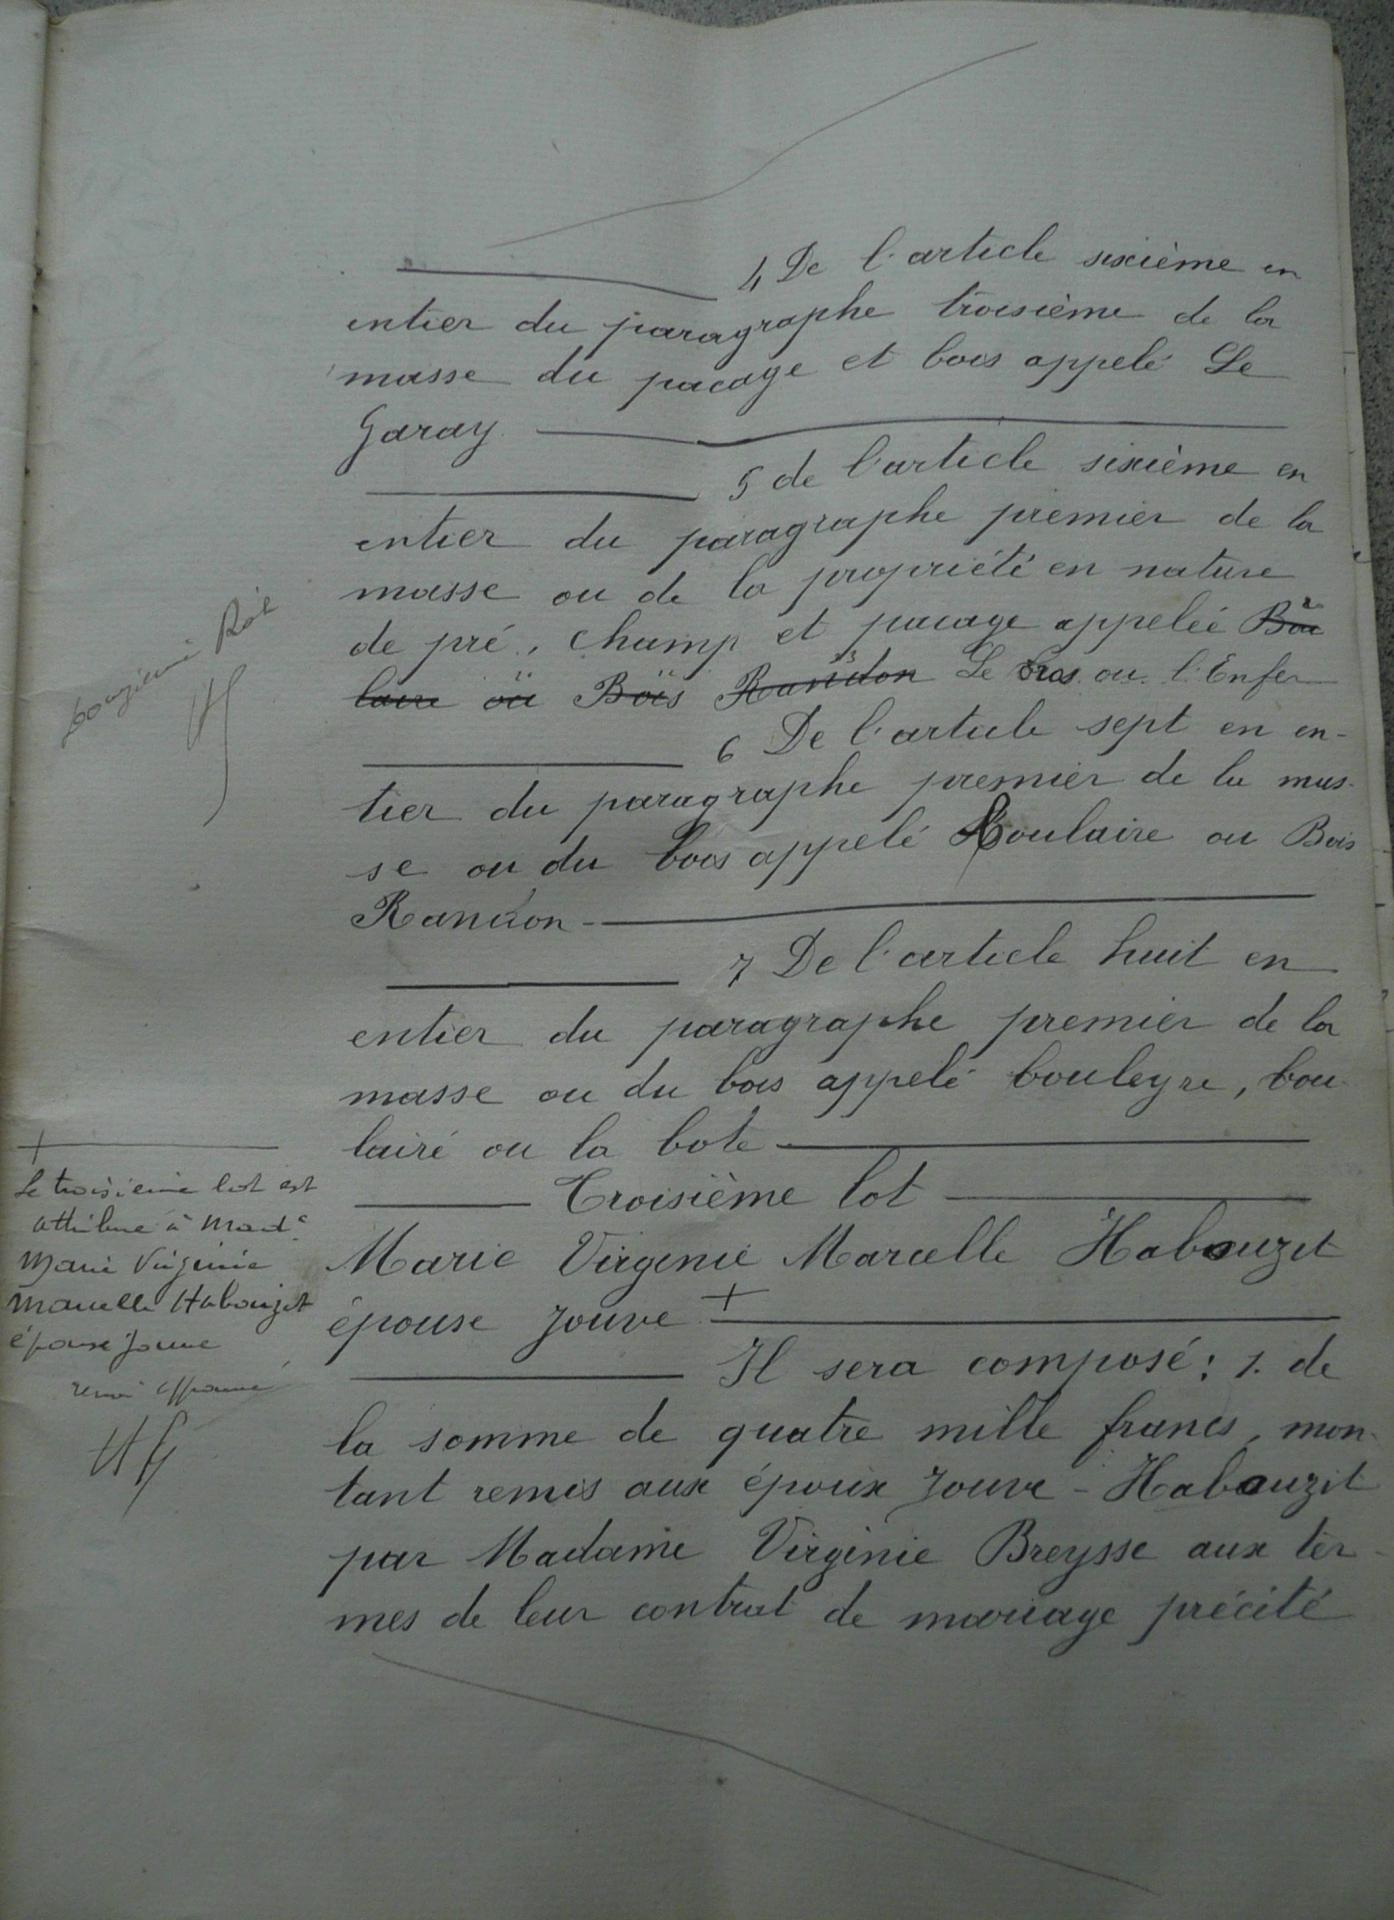 4 De l'article sixième en
entier du paragraphe troisième de la
masse du pacage et bois appelé Le
Garay
5 de l'article sixième en
entier du paragraphe premier de la
masse ou de la propriété en nature
de pré, champ et pacage appelée Bou
laire ou Bois Randon Le bras ou l'Enfer
6 De l'article sept en en-
tier du paragraphe premier de la mas-
se ou du bois appelé Boulaire ou Bois
Randon
7 De l'article huit en
entier du paragraphe premier de la
masse ou du bois appelé bouleyre, bou
lairé ou la bote
Troisième lot
Marie Virginie Marcelle Habouzit
épouse Jouve +
Il sera composé : 1. de
la somme de quatre mille francs, mon-
tant remis aux époux Jouve - Habouzit
par Madame Virginie Breysse aux ter-
mes de leur contrat de mariage précité
Rôle
+
Le troisième lot est
attribué à Made
Marie Virginie
Marcelle Habouzit
épouse Jouve